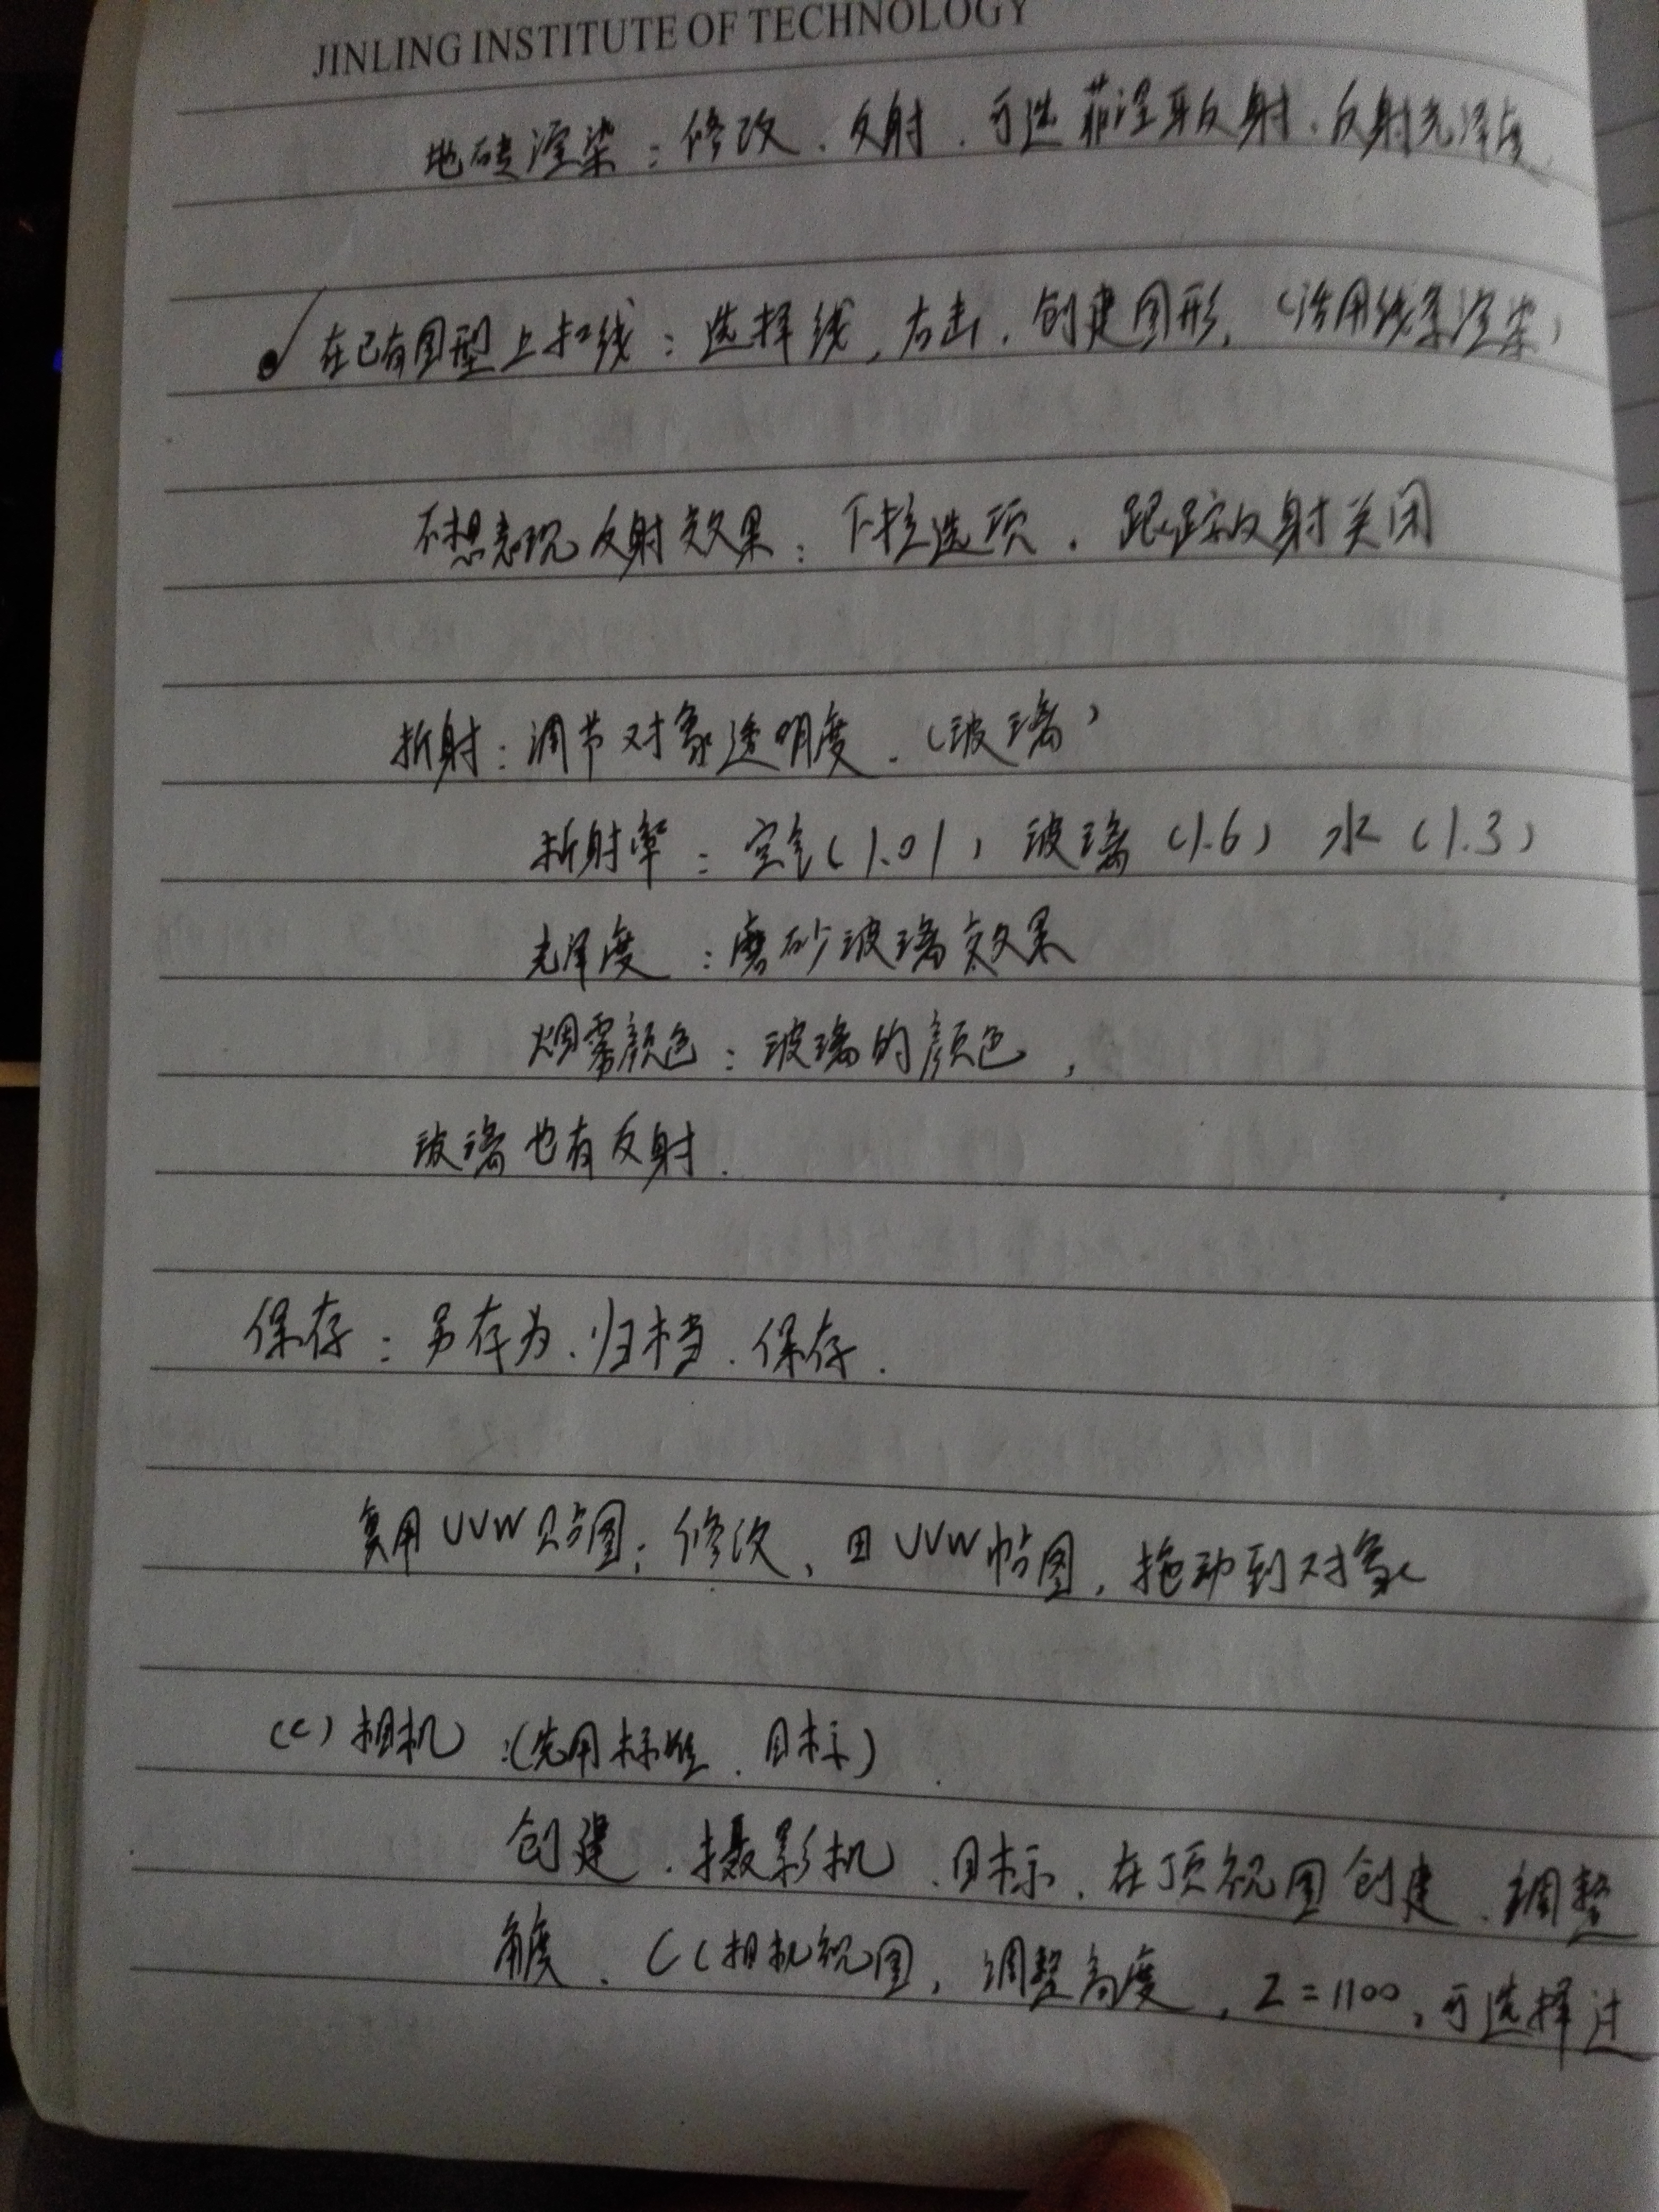 JINLING INSTITUTE OF TECHNOLOGY
地砖渲染：修改、反射、可选菲涅耳反射、反射光泽度
在已有图型上扣线：选择线，右击，创建图形，（活用线条渲染）
不想表现反射效果：下拉选项，跟踪反射关闭
折射：调节对象透明度．（玻璃）
折射率：空气（1.0）玻璃（1.6）水（1.3）
光泽度：磨砂玻璃效果
烟雾颜色：玻璃的颜色，
玻璃也有反射．
保存：另存为、归档、保存．
复用UVW贴图：修改、田UVW帖图，拖动到对象
(C)相机：(先用标准、目标)
创建、摄影机、目标、在顶视图创建、调整
角度、C(相机视图，调整高度，Z=1100，可选择过